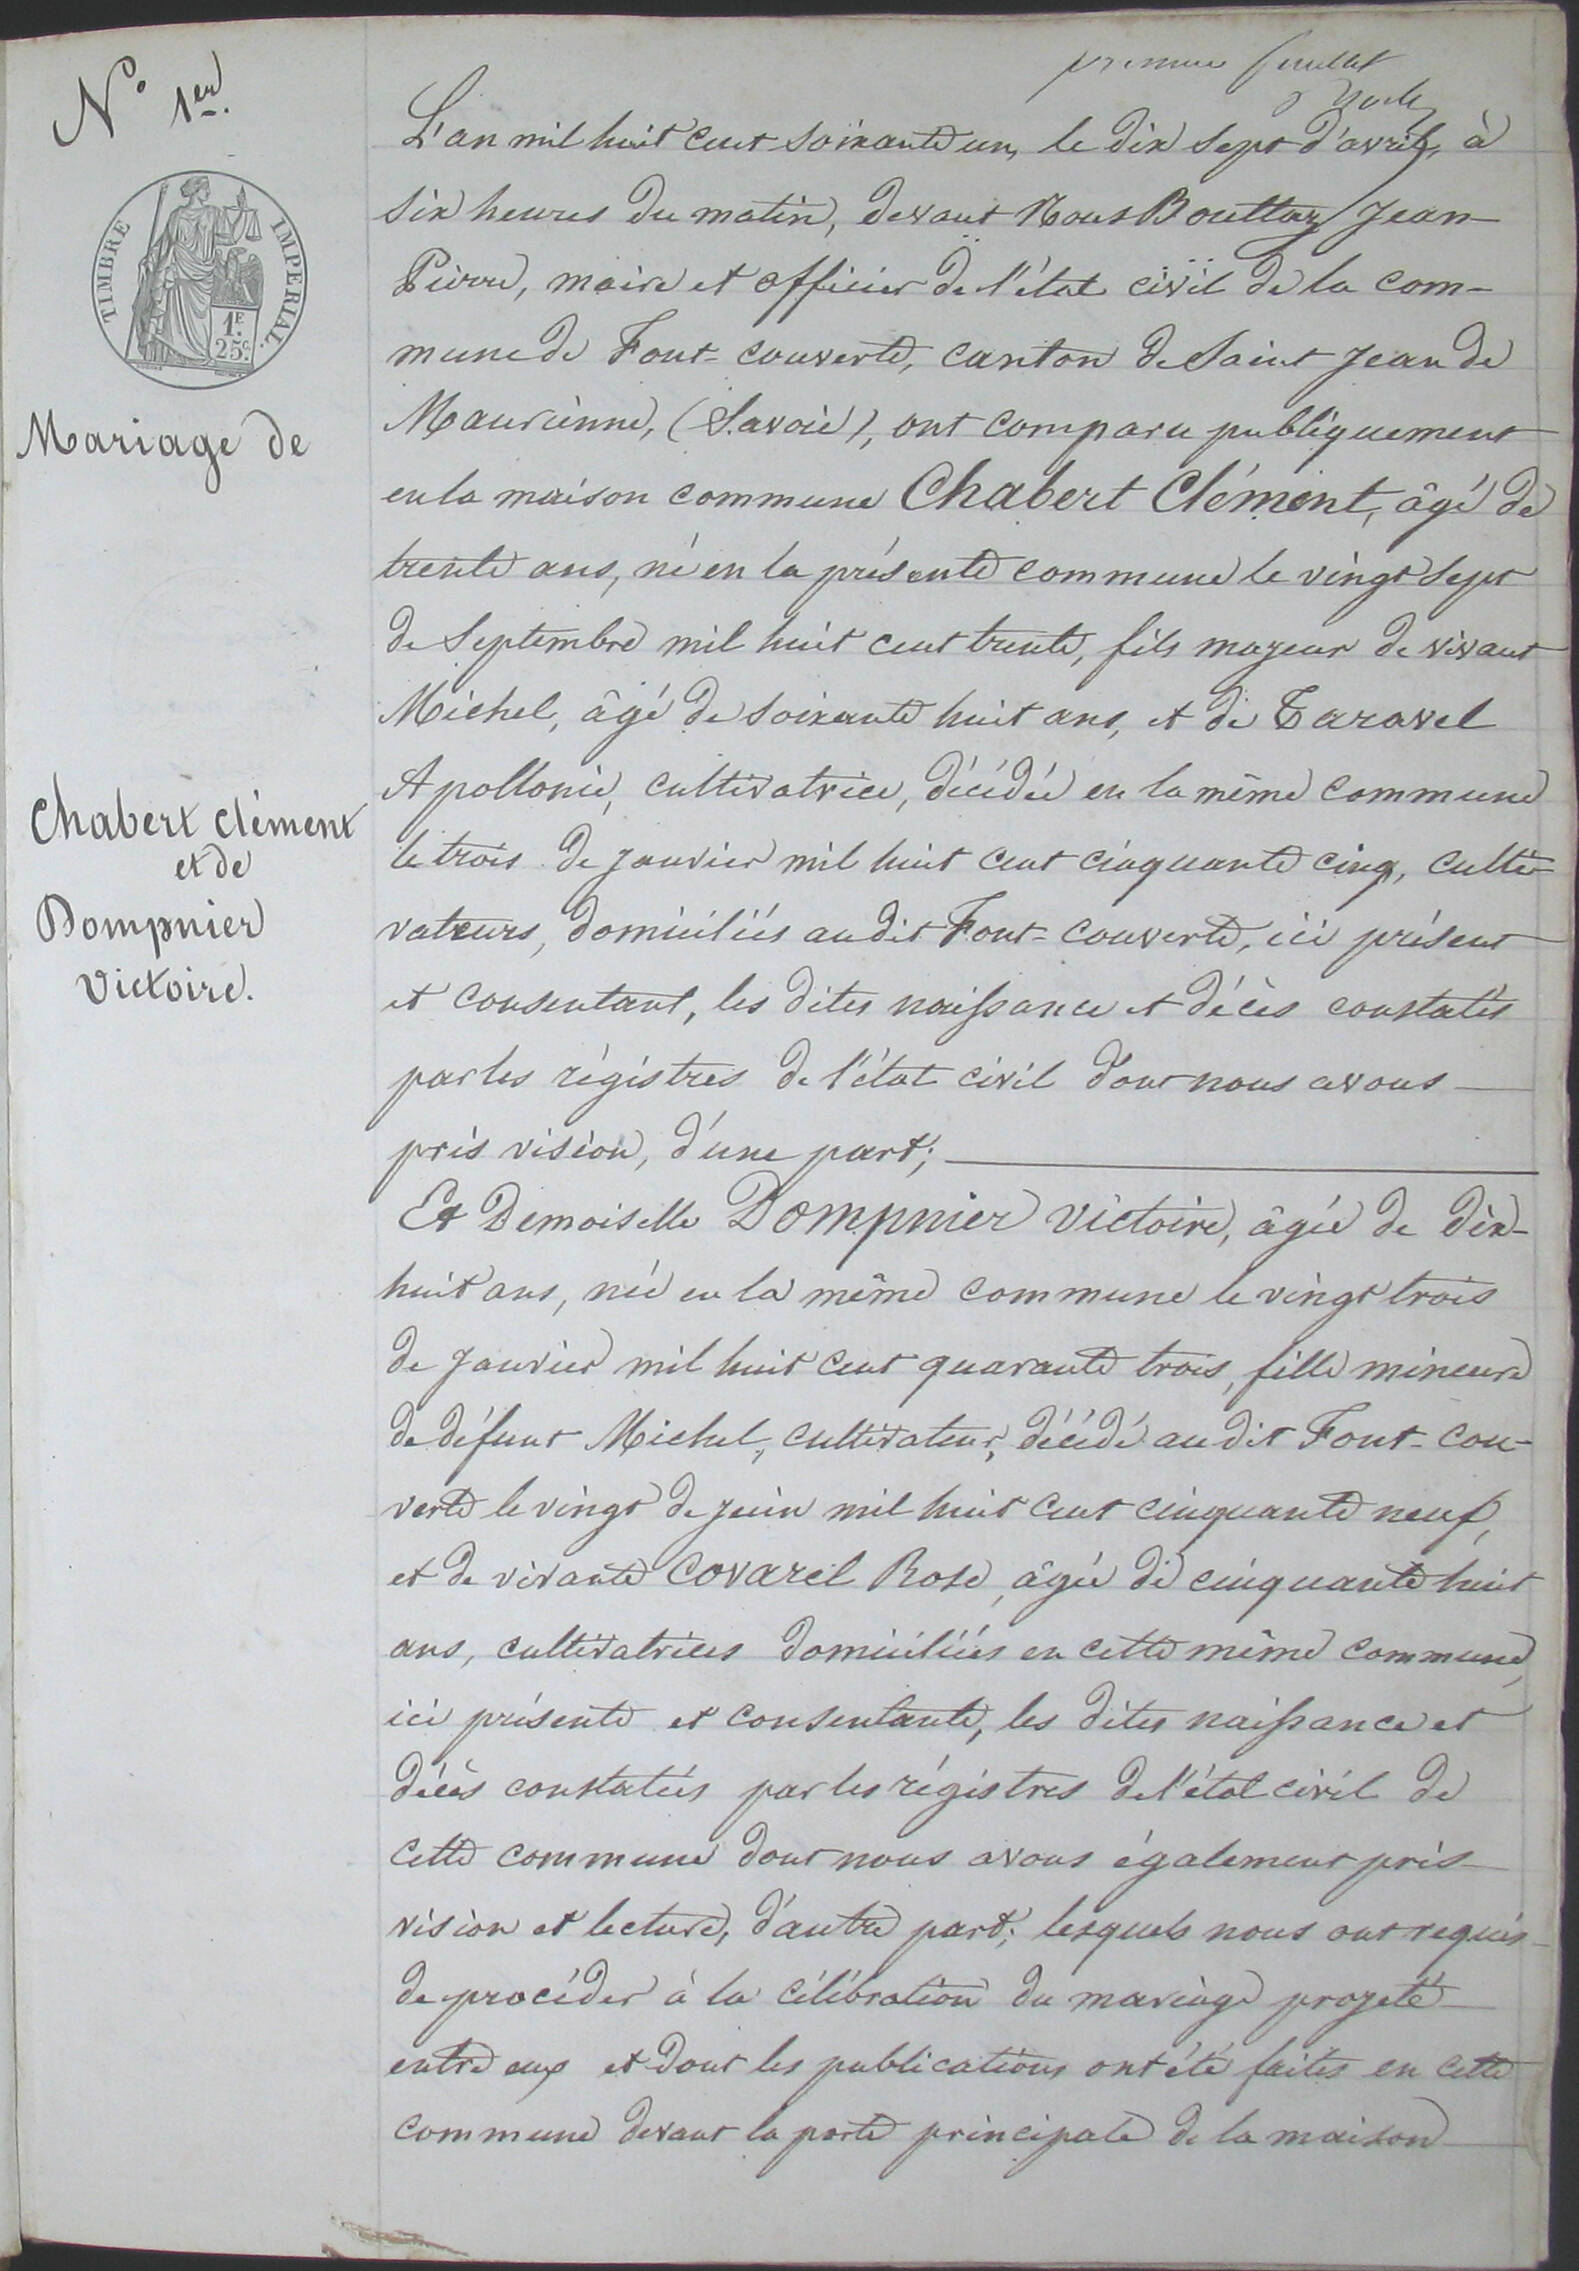 premier feuillet
N° 1er
TIMBRE IMPERIAL.
1F.
25c
Mariage de
Chabert Clément
et de
Dompnier
Victoire.
L'an mil huit cent soixante un, le dix sept d'avril, à
six heures du matin, devant Nous Bouttaz Jean-
Pierre, maire et officier de l'état civil de la com-
mune de Font-couverte, canton de Saint Jean de
Maurienne, (Savoie), ont comparu publiquement
en la maison commune Chabert Clément, âgé de
trente ans, né en la présente commune le vingt sept
de Septembre mil huit cent trente, fils majeur de vivant
Michel, âgé de soixante huit ans, et de Taravel
Apollonie, cultivatrice, décédée en la même commune
le trois de janvier mil huit cent cinquante cinq, culti-
vateurs, domiciliés audit Font-couverte, ici présent
et consentant, les dites naissance et décès constatés
par les régistres de l'état civil dont nous avons
pris vision, d'une part;
Et Demoiselle Dompnier Victoire, âgée de dix-
huit ans, née en la même commune le vingt trois
de janvier mil huit cent quarante trois, fille mineure
de défunt Michel, cultivateur, décédé audit Font-cou-
verte le vingt de juin mil huit cent cinquante neuf,
et de vivante Covarel Rose, âgée de cinquante huit
ans, cultivatrices domiciliées en cette même commune,
ici présente et consentante, les dites naissance et
décès constatées par les régistres de l'état civil de
cette commune dont nous avons également pris
vision et lecture, d'autre part; lesquels nous ont requis
de procéder à la célébration du mariage projeté
entre eux et dont les publications ont été faites en cette
commune devant la porte principale de la maison